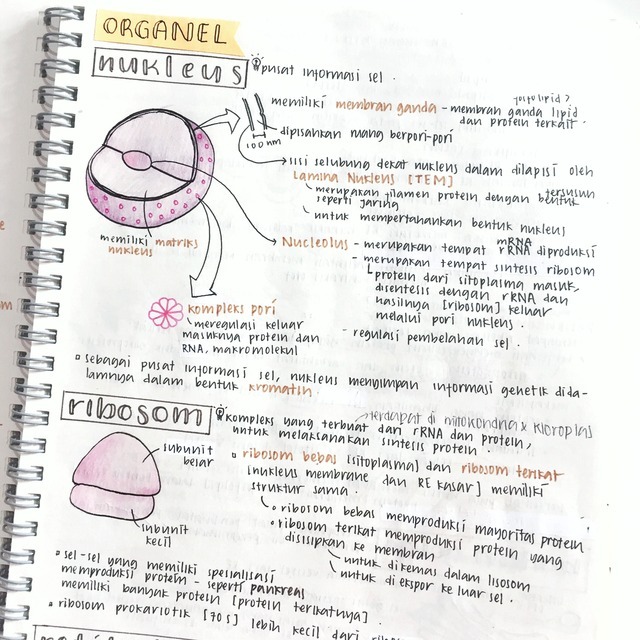 ORGANEL
nukleus
pusat informasi sel.
memiliki membran ganda - membran ganda lipid
fosfolipid?
dan protein terkait.
dipisahkan ruang berpori-pori
100 nm
sisi selubung dekat nukleus dalam dilapisi oleh
Lamina Nukleus [TEM]
merupakan filamen protein dengan bentuk
tersusun
seperti jaring
untuk mempertahankan bentuk nukleus
memiliki matriks
nukleus
Nucleolus - merupakan tempat rRNA diproduksi
mRNA
- merupakan tempat sintesis ribosom
protein dari sitoplasma masuk,
disentesis dengan rRNA dan
hasilnya [ribosom] keluar
melalui pori nukleus.
- regulasi pembelahan sel.
kompleks pori
meregulasi keluar
masuknya protein dan
RNA, makromolekul
sebagai pusat informasi sel, nukleus menyimpan informasi genetik dida-
lamnya dalam bentuk kromatin.
ribosom
terdapat di mitokondria & kloroplas
kompleks yang terbuat dari rRNA dan protein,
untuk melaksanakan sintesis protein.
subunit
besar
subunit
kecil
ribosom bebas [sitoplasma] dan ribosom terikat
[nukleus membrane dan RE kasar] memiliki
struktur sama.
ribosom bebas memproduksi mayoritas protein
ribosom terikat memproduksi protein yang
disisipkan ke membran
untuk dikemas dalam lisosom
untuk di ekspor ke luar sel.
sel-sel yang memiliki spesialisasi
memproduksi protein - seperti pankreas
memiliki banyak protein [protein terikatnya].
ribosom prokariotik [70 s] lebih kecil dari